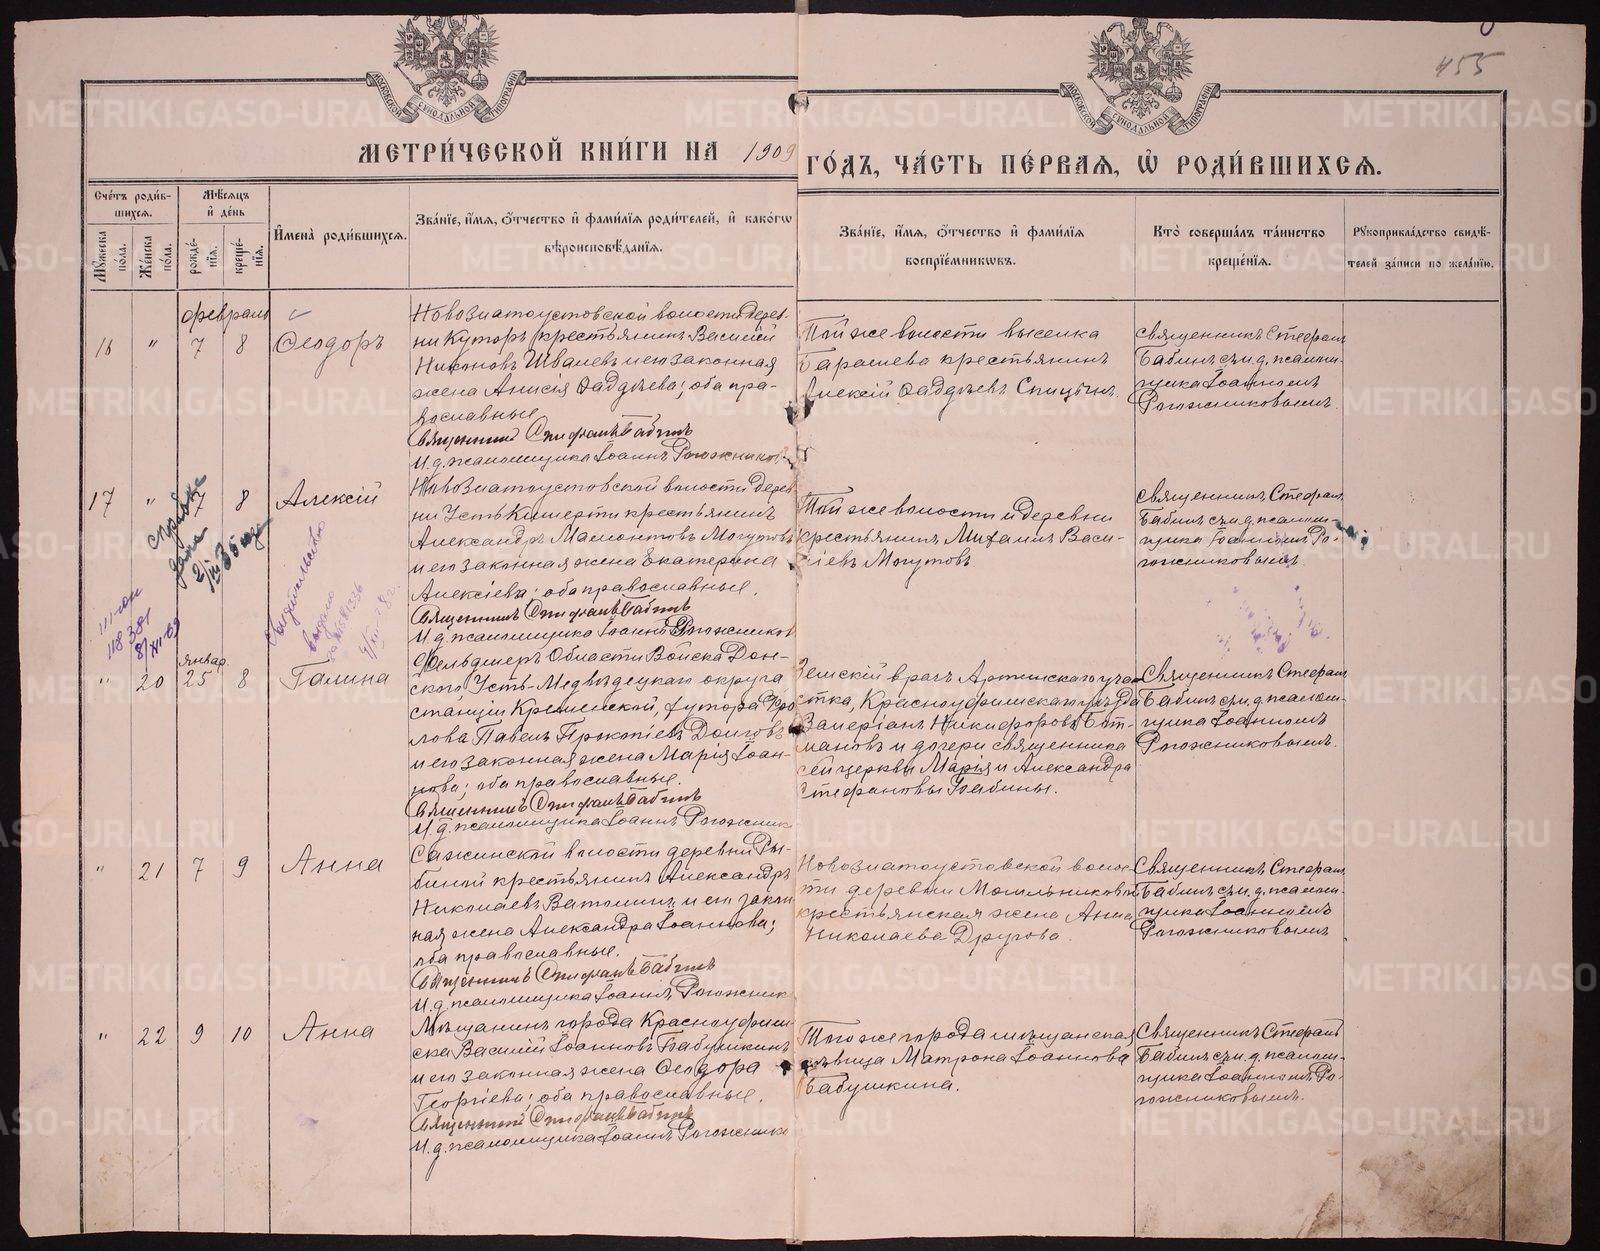 455
МОСКОВСКОЙ СѴНОДАЛЬНОЙ ТИПОГРАФІИ
МОСКОВСКОЙ СѴНОДАЛЬНОЙ ТИПОГРАФІИ
МЕТРИ́ЧЕСКОЙ КНИ́ГИ НА 1909 ГО́ДЪ, ЧА́СТЬ ПЕ́РВАЯ, Ѡ РОДИ́ВШИХСЯ.
Сче́тъ роди́в-
шихся.
Мꙋ́жеска по́ла.
Же́нска по́ла.
Мѣ́сяцъ
и҆ де́нь
рожде́-
нїя.
креще́-
нїя.
И҆мена̀ роди́вшихся.
Зва́нїе, и҆́мя, ѻ҆́тчество и҆ фами́лїя роди́телей, и҆ како́гѡ
вѣроисповѣ́данїя.
Зва́нїе, и҆́мя, ѻ҆́тчество и҆ фами́лїя
воспрїе́мникѡвъ.
Кто̀ соверша́лъ та́инство
креще́нїя.
Рꙋкоприкла́дство свидѣ́-
телей за́писи по жела́нїю.
февраль
16 " 7 8 Ѳеодоръ
Новозлатоустовской волости дерев-
ни Куторъ крестьянинъ Василій
Никоновъ Швалевъ и его законная
жена Анисія Ѳаддѣева; оба пра-
вославные
Священникъ Стефанъ Бабинъ
И.д. псаломщика Іоаннъ Рогожников
Той же волости выселка
Барашева крестьянинъ
Алексій Ѳаддѣевъ Спицынъ.
Священникъ Стефанъ
Бабинъ съ и.д. псалом-
щика Іоанномъ
Рогожниковымъ.
17 " 7 8 Алексій
справка
дана
2/III 35 года
Свидѣтельство
выдано
Новозлатоустовской волости дерев-
ни Усть Кишерти крестьянинъ
Александръ Мамонтовъ Могутовъ
и его законная жена Екатерина
Алексіева; оба православные.
Священникъ Стефанъ Бабинъ
И.д. псаломщика Іоаннъ Рогожников
Той же волости и деревни
крестьянинъ Михаилъ Васи-
ліевъ Могутовъ
Священникъ Стефанъ
Бабинъ съ и.д. псалом-
щика Іоанномъ Ро-
гожниковымъ.
январ.
" 20 25 8 Галина
Фельдшеръ Области Войска Дон-
ского Усть-Медвѣдецкаго округа
станціи Кременской, хутора Фро
лова Павелъ Прокопіевъ Долговъ
и его законная жена Марія Іоан-
нова; оба православные.
Священникъ Стефанъ Бабинъ
И.д. псаломщика Іоаннъ Рогожник
Земскій врачъ Артинскаго уча
стка, Красноуфимскаго уѣзда
Валеріанъ Никифоровъ
и дочери священника
сей церкви Марія и Александра
Стефановы Бабины.
Священникъ Стефанъ
Бабинъ съ и.д. псалом-
щика Іоанномъ
Рогожниковымъ.
" 21 7 9 Анна
Сажинской волости деревни Ры-
биной крестьянинъ Александръ
Николаевъ Ватолинъ и его закон
ная жена Александра Іоаннова;
оба православные.
Священникъ Стефанъ Бабинъ
И.д. псаломщика Іоаннъ Рогожник
Новозлатоустовской волос
ти деревни Мошльниковой
крестьянская жена Анна
Николаева Другова.
Священникъ Стефанъ
Бабинъ съ и.д. псалом-
щика Іоанномъ
Рогожниковымъ
" 22 9 10 Анна
Мѣщанинъ города Красноуфим-
ска Василій Іоанновъ Бабушкинъ
и его законная жена Ѳеодора
Георгіева; оба православные.
Священникъ Стефанъ Бабинъ
И.д. псаломщика Іоаннъ Рогожнико
Того же города мѣщанская
дѣвица Матрона Іоаннова
Бабушкина.
Священникъ Стефанъ
Бабинъ съ и.д. псалом-
щика Іоанномъ Ро-
гожниковымъ.
METRIKI.GASO-URAL.RU